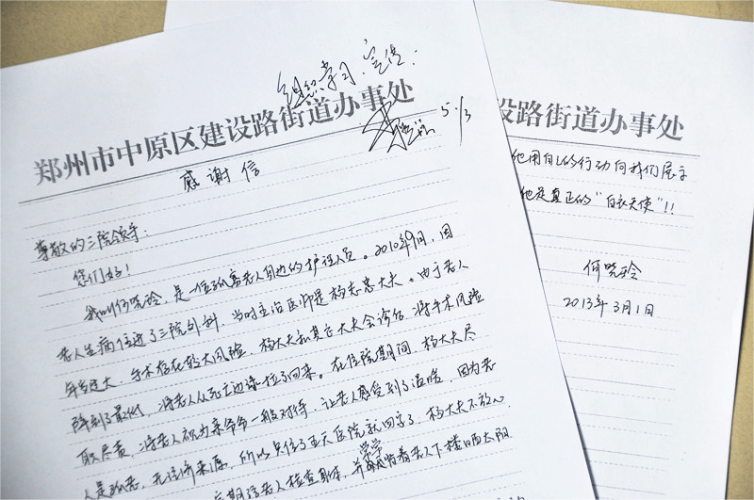 组织学习、宣传:
5.1/3
郑州市中原区建设路街道办事处
感谢信
尊敬的三院领导:
您们好!
我叫何晓玲,是一位孤寡老人周边的护理人员。2010年9月,因
老人生病住进了三院外科,当时主治医师是杨志意大夫。由于老人
年岁过大,手术存在较大风险,杨大夫和其它大夫会诊后,将手术风险
降到了最低,将老人从死亡边缘拉了回来。在住院期间,杨大夫尽
职尽责,将老人视为亲爷爷一般对待,让老人感受到了温暖,因为老
人是孤老,无经济来源,所以只住了五天医院就回家了,杨大夫不放心,
定期给老人检查身体,并常常背着老人下楼晒太阳
建设路街道办事处
他用自己的行动向我们展示
他是真正的“白衣天使”!!
何晓玲
2013年3月1日